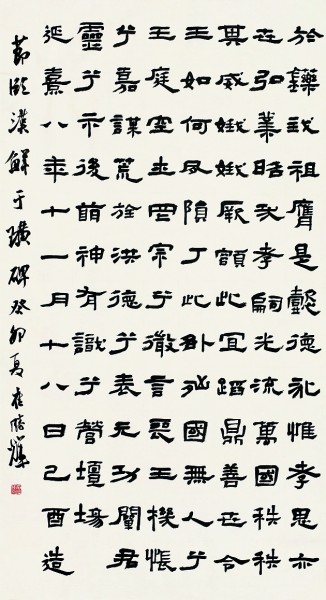 於鑠我祖膺是懿德永惟孝思亦
世弘業昭哉孝嗣光流萬國秩秩
其威娥娥厥額此宜蹈鼎善世令
王如何夙隕丁此咎殃國無人兮
王庭空士罔宗兮微言喪王機悵
兮嘉謀荒旌洪德兮表元功闡君
靈兮示後萌神有識兮營壇場
延熹八年十一月十八日己酉造
節臨漢鮮于璜碑癸卯夏